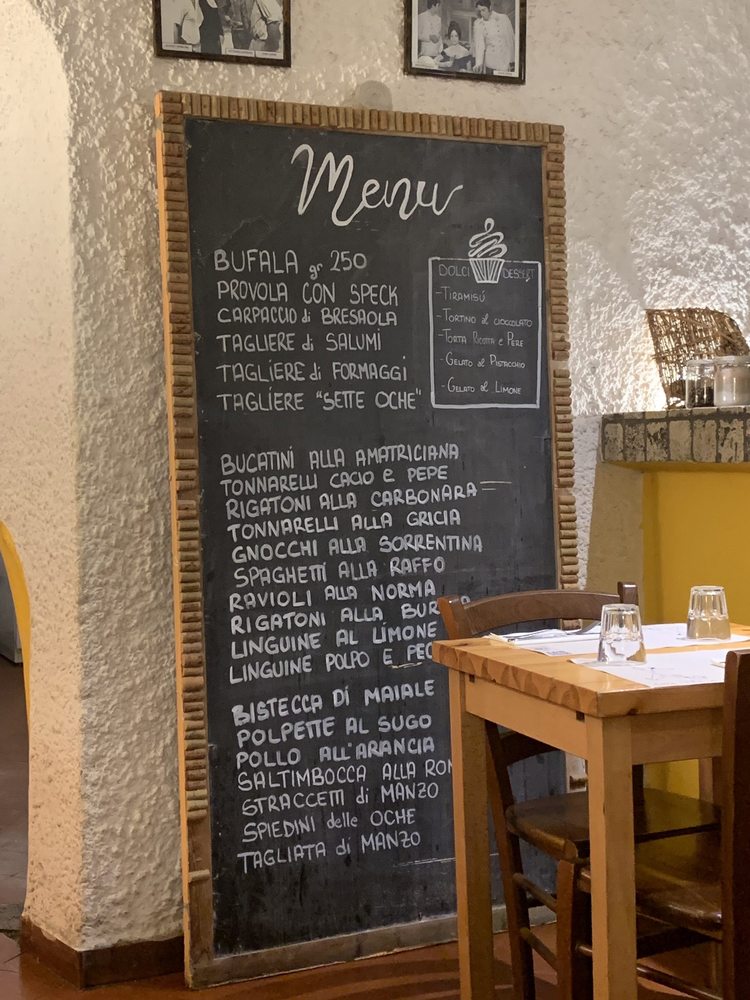 Menu
BUFALA gr 250
PROVOLA CON SPECK
CARPACCIO di BRESAOLA
TAGLIERE di SALUMI
TAGLIERE di FORMAGGI
TAGLIERE "SETTE OCHE"
DOLCI DESSERT
-TIRAMISÚ
-TORTINO al CIOCCOLATO
-TORTA RICOTTA e PERE
-GELATO al PISTACCHIO
-GELATO al LIMONE
BUCATINI ALLA AMATRICIANA
TONNARELLI CACIO e PEPE
RIGATONI ALLA CARBONARA
TONNARELLI ALLA GRICIA
GNOCCHI ALLA SORRENTINA
SPAGHETTI ALLA RAFFO
RAVIOLI ALLA NORMA
RIGATONI ALLA
LINGUINE AL LIMONE
LINGUINE POLPO E
BISTECCA DI MAIALE
POLPETTE AL SUGO
POLLO ALL'ARANCIA
SALTIMBOCCA ALLA
STRACCETTI di MANZO
SPIEDINI delle OCHE
TAGLIATA di MANZO